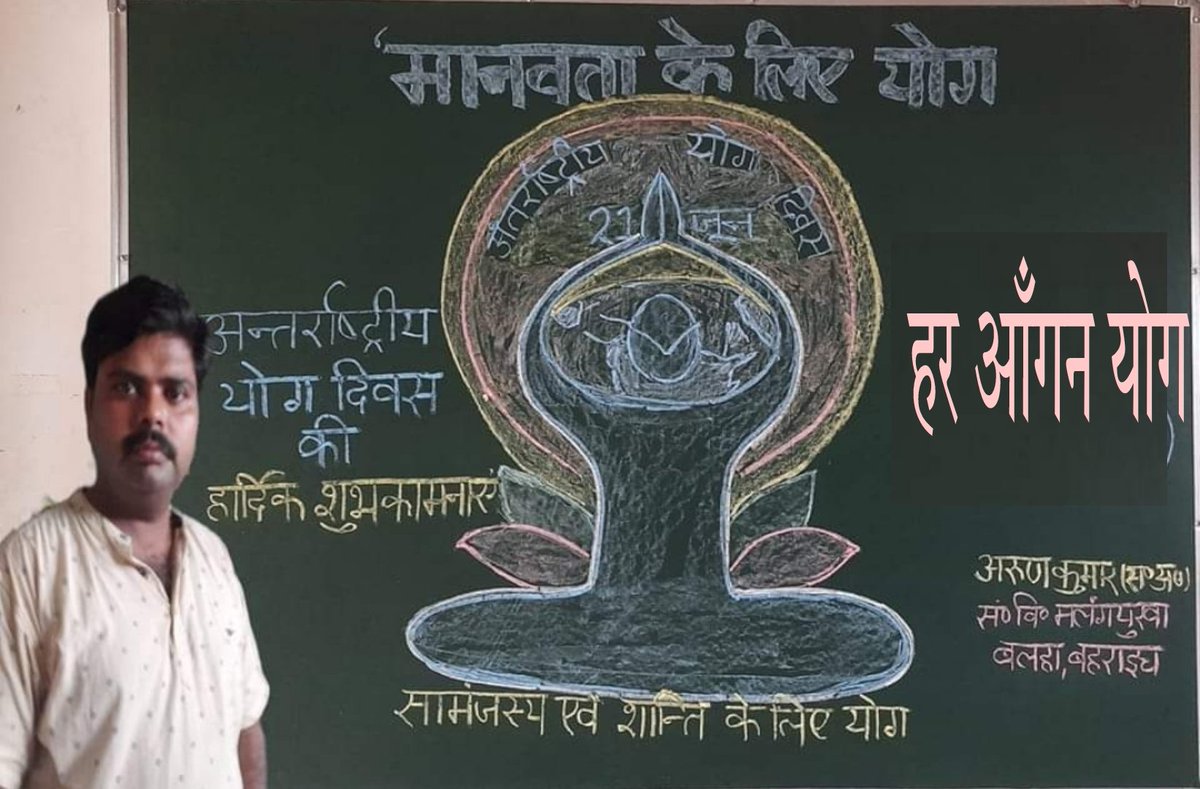 'मानवता के लिए योग
अंतर्राष्ट्रीय योग दिवस
21 जून
अन्तर्राष्ट्रीय
योग दिवस
की
हार्दिक शुभकामनाएं
हर आँगन योग
अरुण कुमार (स०अ०)
सं०वि० मलंगपुरवा
बलहा, बहराइच
सामंजस्य एवं शान्ति के लिए योग